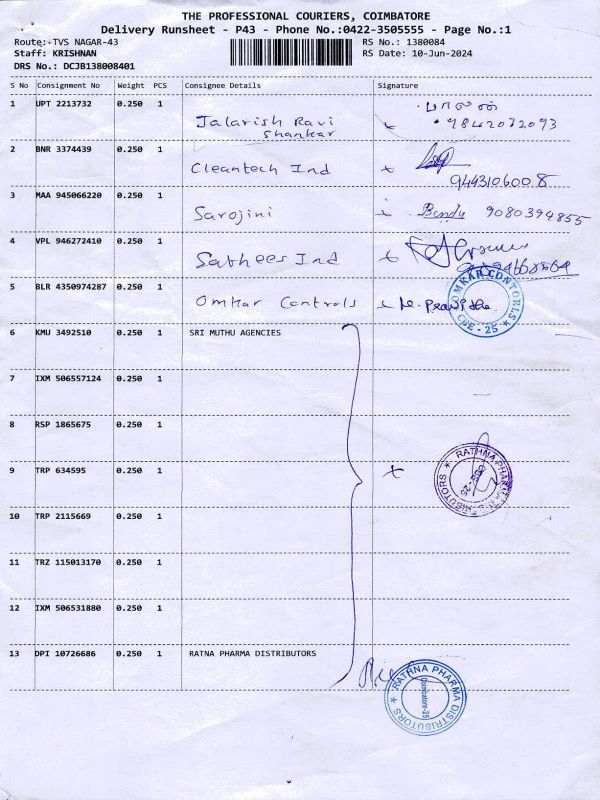 THE PROFESSIONAL COURIERS, COIMBATORE
Delivery Runsheet - P43 - Phone No.:0422-3505555 - Page No.:1
Route: TVS NAGAR-43 RS No.: 1380084
Staff: KRISHNAN RS Date: 10-Jun-2024
DRS No.: DCJB138008401
S No Consignment No Weight PCS Consignee Details Signature
1 UPT 2213732 0.250 1 Jalarish Ravi
Shankar 9842032093
2 BNR 3374439 0.250 1 Cleantech Ind 9443106008
3 MAA 945066220 0.250 1 Sarojini Bendy 9080394855
4 VPL 946272410 0.250 1 Sathees Ind
5 BLR 4350974287 0.250 1 Omkar Controls
OMKAR CONTORLS CBE - 25
6 KMU 3492510 0.250 1 SRI MUTHU AGENCIES
7 IXM 506557124 0.250 1
8 RSP 1865675 0.250 1
9 TRP 634595 0.250 1 RATHNA PHARMA DISTRIBUTORS
10 TRP 2115669 0.250 1
11 TRZ 115013170 0.250 1
12 IXM 506531880 0.250 1
13 DPI 10726686 0.250 1 RATNA PHARMA DISTRIBUTORS
RATHNA PHARMA DISTRIBUTORS Coimbatore-25